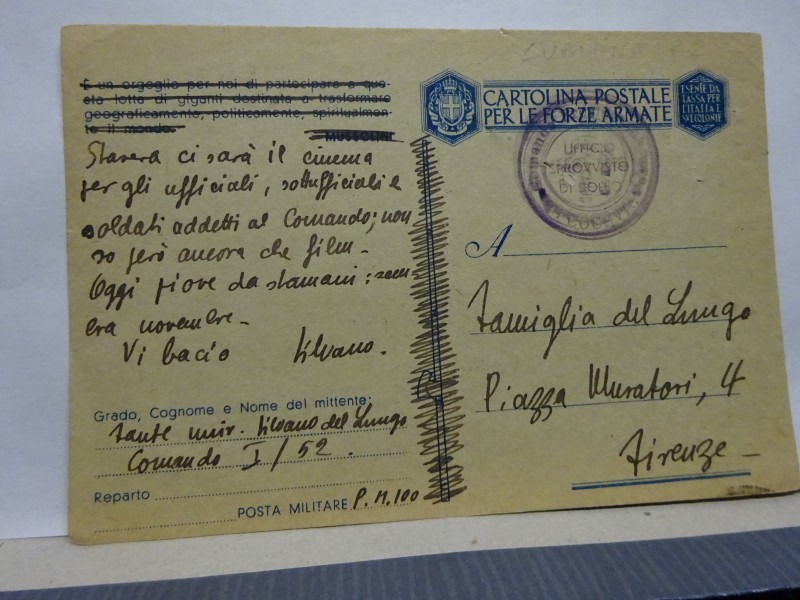 È un orgoglio per noi di partecipare a que-
sta lotta di giganti destinata a trasformare
geograficamente, politicamente, spiritualmen-
te il mondo.
MUSSOLINI
Stasera ci sarà il cinema
per gli ufficiali, sottufficiali e
soldati addetti al Comando; non
so però ancora che film.
Oggi piove da stamani: sem
bra novembre.
Vi bacio Silvano.
Grado, Cognome e Nome del mittente:
Silvano del Lungo
Comando I/52.
Reparto
POSTA MILITARE P.M. 100
CARTOLINA POSTALE
PER LE FORZE ARMATE
ESENTE DA
TASSA PER
L'ITALIA E
SUE COLONIE
UFFICIO
SPROVVISTO
DI BOLLO
A
Famiglia del Lungo
Piazza Muratori, 4
Firenze